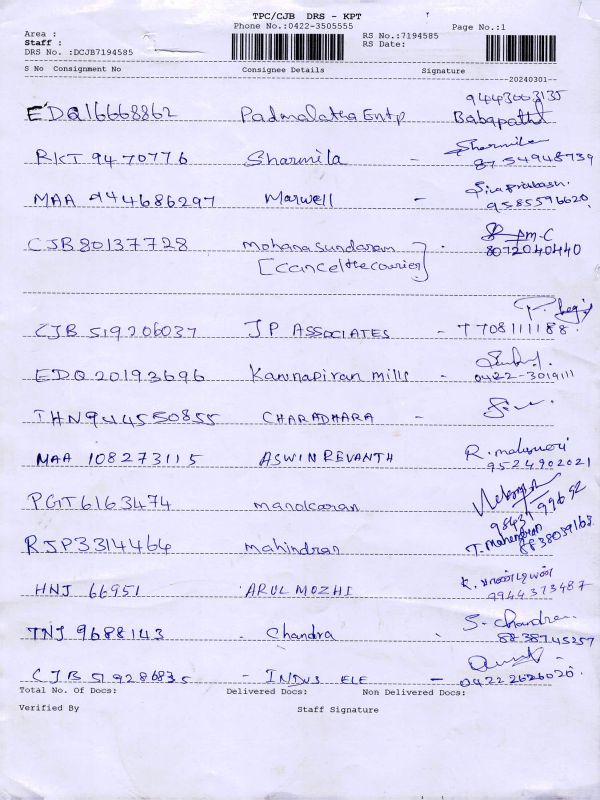 TPC/CJB DRS - KPT
Phone No.:0422-3505555
Page No.:1
Area :
Staff :
DRS No. :DCJB7194585
RS No.:7194585
RS Date:
S No Consignment No Consignee Details Signature
20240301
9443003135
EDQ16668862 Padmalatha Entp Babapathi
RKT 9470776 Sharmila - Sharmila
8754948739
MAA 944686297 Marwell - Sivaprakash.
9585596620
CJB80137728 Mohanasundaram
[Cancel the courier] 8072040440
CJB 519206037 JP ASSOCIATES - 7708111188.
EDQ 20193696 Karunapiran Mills -
0422-3019111
THN944550855 CHARADHARA -
MAA 108273115 ASWIN REVANTH R.
9524902021
PGT6163474 Manokaran
98431 99652
RJP3314464 Mahindran T. Mahendran
8838039163
HNJ 66951 ARUL MOZHI K. பாண்டியன்
9944373487
TNJ 9688143 - Chandra S. Chandra.
8838745257
CJB 519286835 - INDUS ELE - 04222626020.
Total No. Of Docs: Delivered Docs: Non Delivered Docs:
Verified By Staff Signature